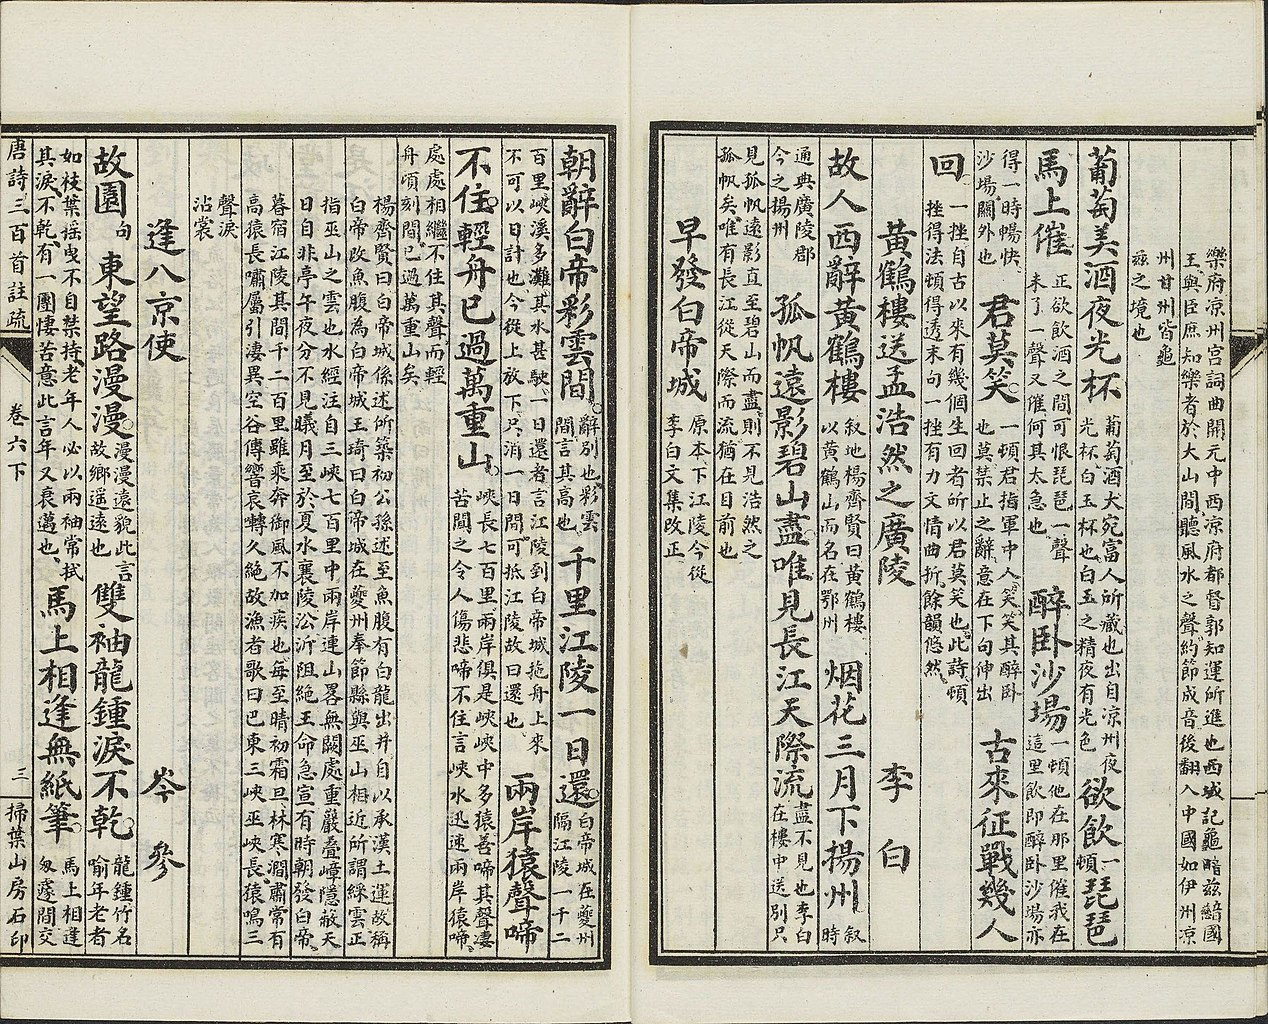 樂府凉州宫詞曲開元中西凉府都督郭知運所進也西域記龜暗兹龤國
王與臣庶知樂者於大山間聽風水之聲約節成音後翻入中國如伊州凉
州甘州皆龜
兹之境也
葡萄美酒夜光杯葡萄酒大宛富人所藏也出自凉州夜光杯白玉杯也白玉之精夜有光色欲飲一頓琵琶
馬上催正欲飲酒之間可恨琵琶一聲未了一聲又催何其太急也醉卧沙場一頓他在那里催我在這里飲即醉卧沙場亦
得一時暢快沙場關外也君莫笑一頓君指軍中人笑笑其醉卧也莫禁止之辭意在下句伸出古來征戰幾人
回一挫自古以來有幾個生回者所以君莫笑也此詩頓挫得法頓得透末句一挫有力文情曲折餘韻悠然
黃鶴樓送孟浩然之廣陵 李白
故人西辭黃鶴樓叙地楊齊賢曰黃鶴樓以黃鶴山而名在鄂州烟花三月下揚州叙時
通典廣陵郡今之揚州孤帆遠影碧山盡唯見長江天際流盡不見也李白在樓中送別只
見孤帆遠影直至碧山而盡則不見浩然之
孤帆矣唯有長江從天際而流猶在目前也
早發白帝城原本下江陵今從李白文集改正
朝辭白帝彩雲間辭別也彩雲間言其高也千里江陵一日還白帝城在夔州隔江陵一千二
百里峽溪多灘其水甚駛一日還者言江陵到白帝城拖舟上來不可以日計也今從上放下只消一日間可抵江陵故曰還也兩岸猿聲啼
不住輕舟已過萬重山峽長七百里兩岸俱是峽峽中多猿善啼其聲淒苦聞之令人傷悲啼不住言峽水迅速兩岸猿啼
處處相繼不住其聲而輕
舟頃刻間已過萬重山矣
楊齊賢曰白帝城係述所築初公孫述至魚腹有白龍出井自以承漢土運故稱
白帝改魚腹為白帝城王琦曰白帝城在夔州奉節縣與巫山相近所謂綵雲正
指巫山之雲也水經注自三峽七百里中兩岸連山畧無闕處重巖疊嶂隱蔽天
日自非亭午夜分不見曦月至於夏水襄陵沿泝阻絕王命急宣有時朝發白帝
暮宿江陵其間千二百里雖乘奔御風不加疾也每至晴初霜旦林寒澗肅常有
高猿長嘯屬引淒異空谷傳響哀轉久絕故漁者歌曰巴東三峽巫峽長猿鳴三
聲淚
沾裳
逢入京使 岑參
故園句東望路漫漫漫漫遠貌此言故鄉遥遠也雙袖龍鍾淚不乾龍鍾竹名喻年老者
如枝葉摇曳不自禁持老年人必以兩袖常拭其淚不乾有一團悽苦意此言年又衰邁也馬上相逢無紙筆馬上相逢匆遽間交
唐詩三百首註疏 卷六下 三 掃葉山房石印